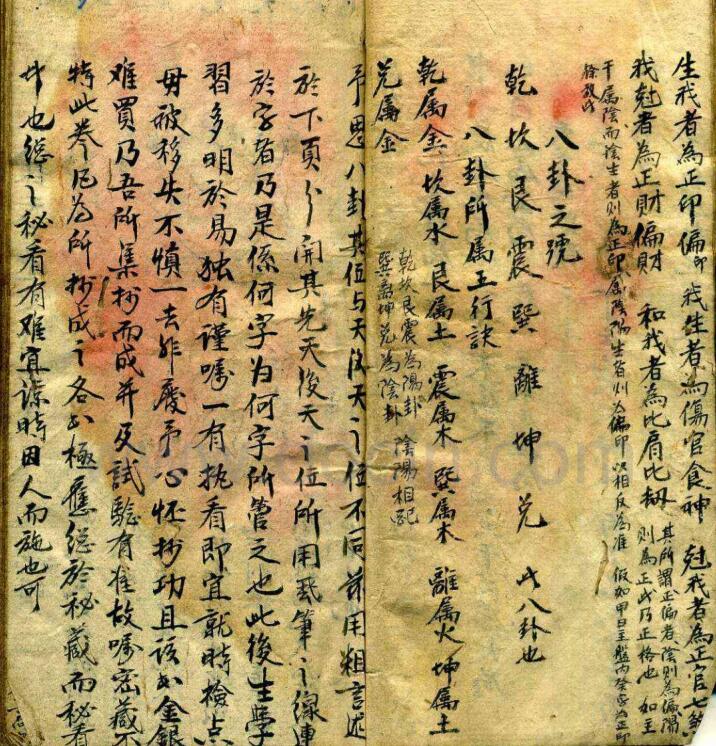 生我者為正印偏印 我生者為傷官食神 尅我者為正官七煞
我尅者為正財偏財 和我者為比肩比劫 其所謂正偏者陰則為偏陽
則為正此乃正格也 如主
干屬陰而陰生者則為正印屬陰陽生者則為偏印以相反為准 假如甲日主盤內癸字為正印
餘放此
八卦之號
乾 坎 艮 震 巽 離 坤 兌 此八卦也
八卦所属五行訣
乾属金 坎属水 艮属土 震属木 巽属木 離属火 坤属土
兌属金
乾坎艮震為陽卦 陰陽相配
巽離坤兌為陰卦
予思八卦其位与天後天之位不同兹用粗言述
於下頁分開其先天後天之位所用硃筆之線連
於字者乃是係何字为何字所管之也此後生學
習多明於易独有謹嘱一有执看即宜就時檢点
毋被移失不慎一去非廢予心怀抄功且該本金銀
难買乃吾所集抄而成并及試驗有准故嘱密藏不
特此卷凡為所抄成之各本極應總於秘藏而秘看
此也總之秘看有难宜諒時因人而施也可